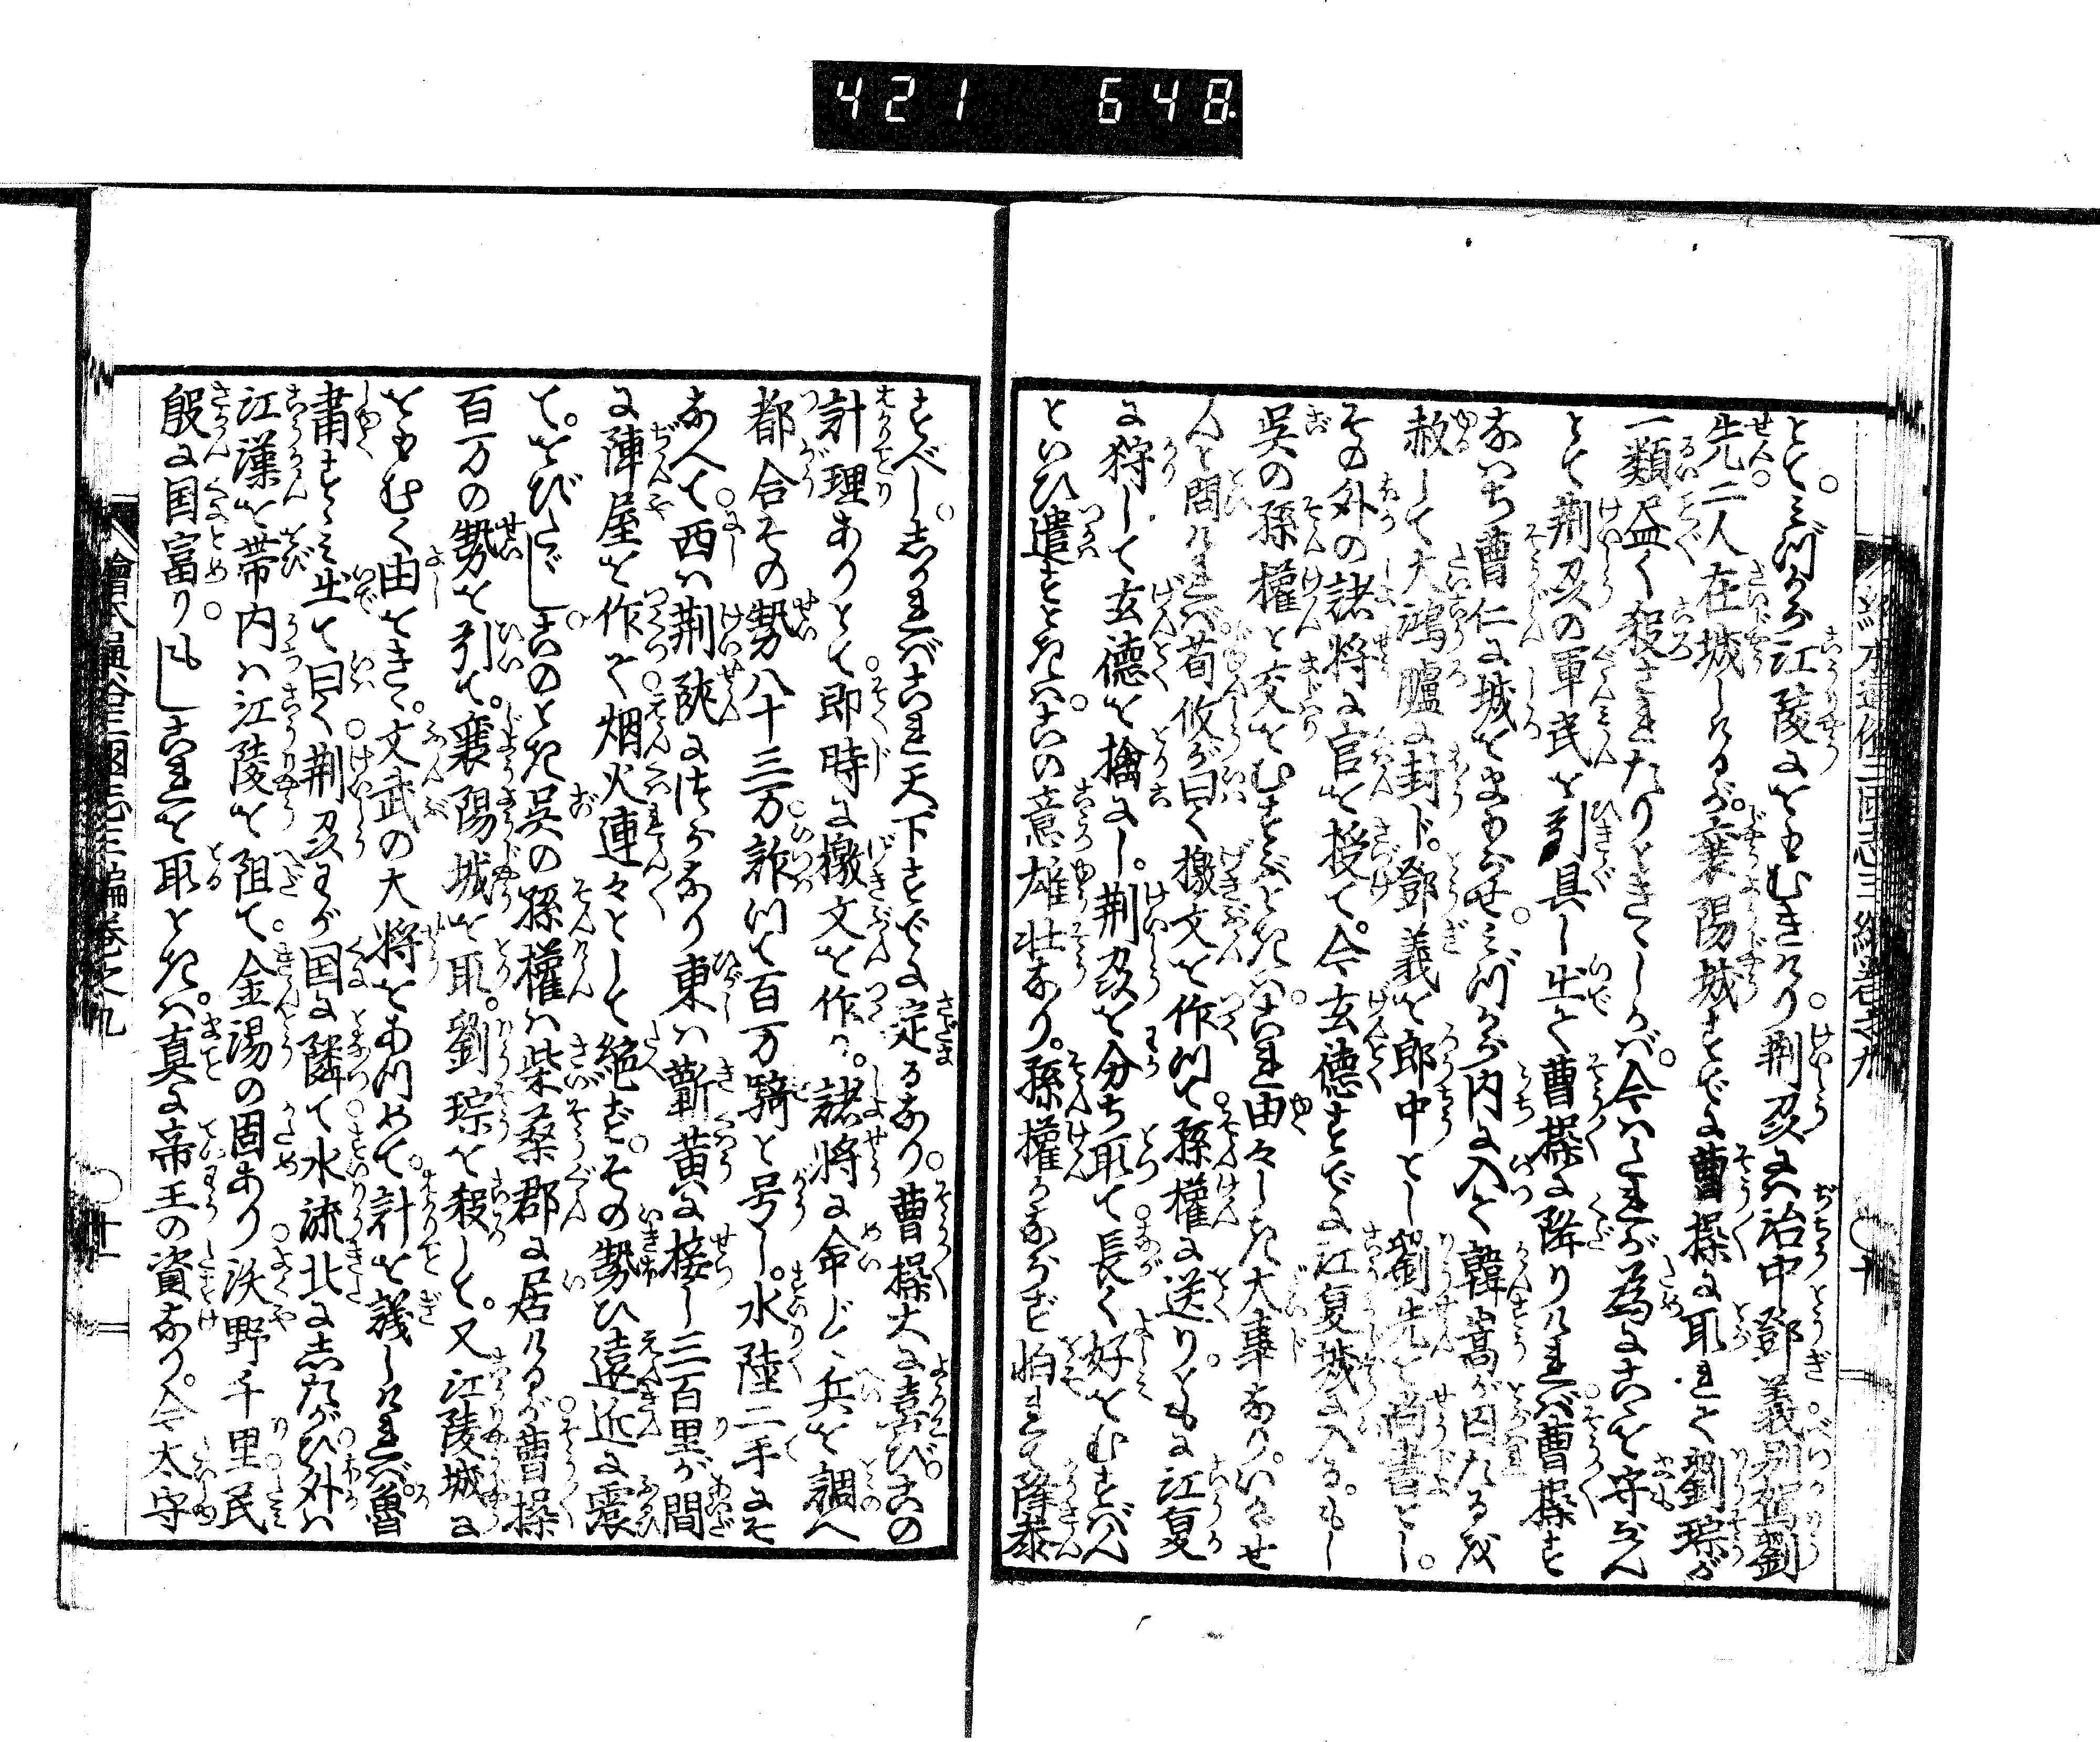 421 648
繪本通俗三國志三編巻之九 ○十
とて。みづから江陵におもむきけり。荆州には治中鄧義。別駕劉
先二人在城しけるが。襄陽城すでに曹操に取れて劉琮が
一類盡く殺されたりときこしかば。今はたれが為にこれを守らん
とて荆州の軍民を引具し出て曹操に降りければ。曹操す
なはち曹仁に城をまもらせ。みづから内に入て韓嵩が囚たるを
赦して大鴻臚に封ド。鄧義を郎中とし劉先を尚書とし。
その外の諸将に官を授て。今玄德すでに江夏城に入る。もし
呉の孫權と交をむすぶときは。これ由々しき大事なり。いかゞせ
んと問ければ。荀攸が曰く檄文を作けて孫權に送り。ともに江夏
に狩して玄德を擒にし。荆州を分ち取て。長く好をむすばん
といひ遣すときは。この意雄壮なり。孫權かならず怕れて降参
すべし。しかればこれ天下すでに定るなり。曹操大に喜び。この
計理ありとて。即時に檄文を作り。諸将に命じ。兵を調へ
都合その勢八十三万。詐けて百万騎と号し。水陸二手にそ
なへて。西は荆陝につらなり東は蘄黄に接し三百里が間
に陣屋を作て。烟火連々として絶ず。その勢ひ遠近に震
て。おびたゞし。このとき呉の孫權は柴桑郡に居けるが。曹操
百万の勢を引て。襄陽城を取。劉琮を殺して。又江陵城に
おもむく由をきゝ。文武の大将をあつめて。計を議しければ。魯
肅すゝみ出て曰く。荆州わが国に隣て。水流北にしたがひ。外は
江漢を帯内は江陵を阻て。金湯の固あり。沃野千里。民
殷に国富り。もしこれを取ときは。真に帝王の資なり。今太守
繪本通俗三國志三編巻之九 ○十一